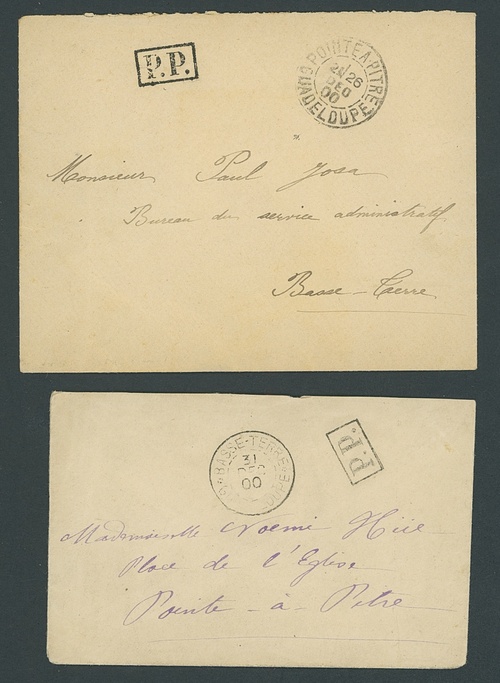 P.P.
POINTE A PITRE
26
DEC
00
GUADELOUPE
Monsieur Paul Josa
Bureau du service administratif
Basse-Terre
P.P.
BASSE-TERRE
31
DEC
00
Mademoiselle Noémie
Place de l'Eglise
Pointe-à-Pitre